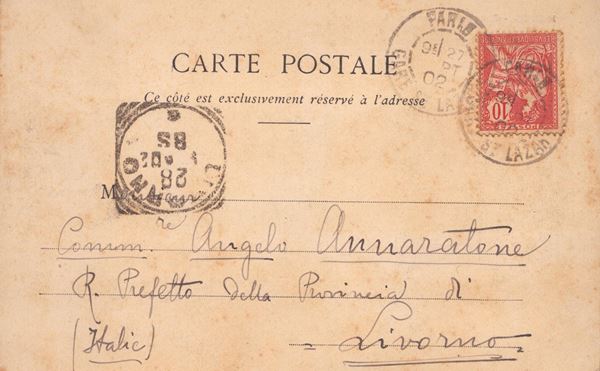 PARIS
9E 27
02
CARTE POSTALE
Ce côté est exclusivement réservé à l'adresse
10
ST LAZARE
LIVORNO
28
02
M
Comm. Angelo Annaratone
R. Prefetto della Provincia di
(Italie) = Livorno =